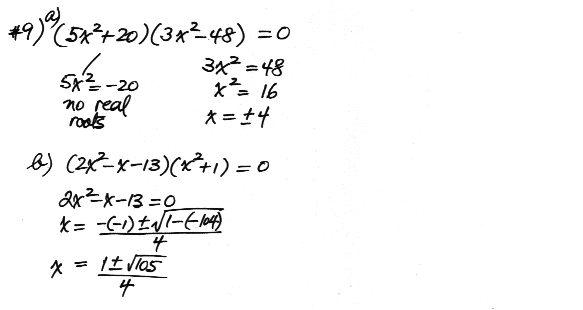 #9) a) (5x²+20)(3x²-48) = 0
5x² = -20
no real
roots
3x² = 48
x² = 16
x = ±4
b) (2x²-x-13)(x²+1) = 0
2x²-x-13 = 0
x = -(-1) ± √1-(-104) / 4
x = 1 ± √105 / 4